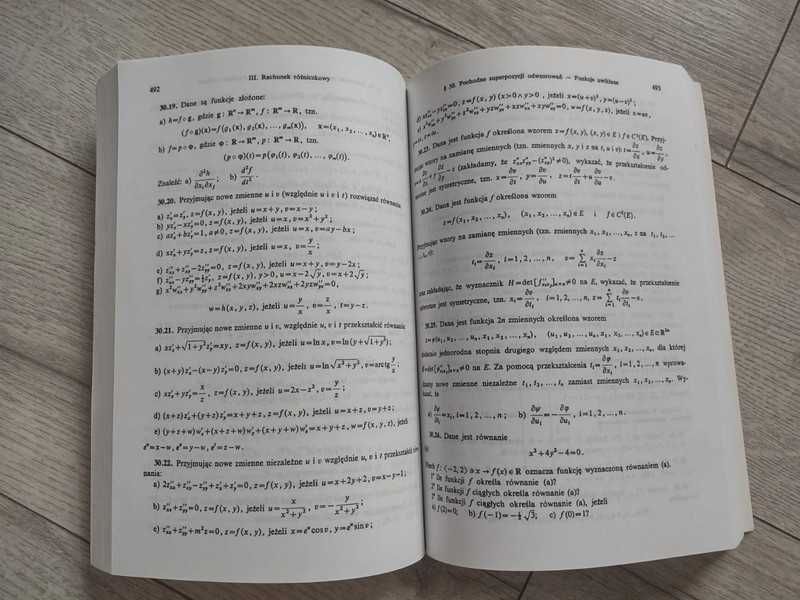 492
III. Rachunek różniczkowy
30.19. Dane są funkcje złożone:
a) h=f∘g, gdzie g: Rⁿ→Rᵐ, f: Rᵐ→R, tzn.
(f∘g)(x)=f(g₁(x), g₂(x), ..., gₘ(x)), x=(x₁, x₂, ..., xₙ)∈Rⁿ,
b) f=p∘φ, gdzie φ: R→Rᵐ, p: Rᵐ→R, tzn.
(p∘φ)(t)=p(φ₁(t), φ₂(t), ..., φₘ(t)).
Znaleźć: a) ∂²h/∂xᵢ∂xⱼ; b) d²f/dt².
30.20. Przyjmując nowe zmienne u i v (względnie u i v i t) rozwiązać równania
a) z'ₓ=z'ᵧ, z=f(x, y), jeżeli u=x+y, v=x−y;
b) yz'ₓ−xz'ᵧ=0, z=f(x, y), jeżeli u=x, v=x²+y²;
c) az'ₓ+bz'ᵧ=1, a≠0, z=f(x, y), jeżeli u=x, v=ay−bx;
d) xz'ₓ+yz'ᵧ=z, z=f(x, y), jeżeli u=x, v=y/x;
e) z''ₓᵧ+z''ₓᵧ−2z''ᵧᵧ=0, z=f(x, y), jeżeli u=x+y, v=y−2x;
w=h(x, y, z), jeżeli u=y/x, v=z/x, t=y−z.
30.21. Przyjmując nowe zmienne u i v, względnie u, v i t przekształcić równanie
a) xz'ₓ+√(1+y²)z'ᵧ=xy, z=f(x, y), jeżeli u=ln x, v=ln(y+√(1+y²));
b) (x+y)z'ₓ−(x−y)z'ᵧ=0, z=f(x, y), jeżeli u=ln√(x²+y²), v=arctg y/x;
c) xz'ₓ+yz'ᵧ=x/z, z=f(x, y), jeżeli u=2x−z², v=y/z;
d) (x+z)z'ₓ+(y+z)z'ᵧ=x+y+z, z=f(x, y), jeżeli u=x+z, v=y+z;
e) (y+z+w)w'ₓ+(x+z+w)w'ᵧ+(x+y+w)w'_z=x+y+z, w=f(x, y, z), jeżeli
eᵘ=x−w, eᵛ=y−w, eᵗ=z−w.
30.22. Przyjmując nowe zmienne niezależne u i v względnie u, v i t przekształcić równania:
a) 2z''ₓₓ+z''ₓᵧ−z''ᵧᵧ+z'ₓ+z'ᵧ=0, z=f(x, y), jeżeli u=x+2y+2, v=x−y−1;
b) z''ₓₓ+z''ᵧᵧ=0, z=f(x, y), jeżeli u=x/(x²+y²), v=−y/(x²+y²);
c) z''ₓₓ+z''ᵧᵧ+m²z=0, z=f(x, y), jeżeli x=eᵘcos v, y=eᵘsin v;
§ 30. Pochodne superpozycji odwzorowań — Funkcje uwikłane
493
30.23. Dana jest funkcja f określona wzorem z=f(x, y), (x, y)∈E i f∈C²(E). Przyj-
wzory na zamianę zmiennych (tzn. zmiennych x, y i z na t, u i v): t=∂z/∂x, u=∂z/∂y,
(zakładamy, że z''ₓₓz''ᵧᵧ−(z''ₓᵧ)²≠0), wykazać, że przekształcenie od-
jest symetryczne, tzn. x=∂v/∂t, y=∂v/∂u, z=t∂v/∂t+u∂v/∂u−v.
30.24. Dana jest funkcja f określona wzorem
z=f(x₁, x₂, ..., xₙ), (x₁, x₂, ..., xₙ)∈E i f∈C²(E).
Przyjmując wzory na zamianę zmiennych (tzn. zmiennych x₁, x₂, ..., xₙ, z na t₁, t₂, ...
tᵢ=∂z/∂xᵢ, i=1, 2, ..., n, v=∑ᵢ₌₁ⁿ xᵢ∂z/∂xᵢ−z
oraz zakładając, że wyznacznik H=det[f''ₓᵢₓⱼ]≠0 na E, wykazać, że przekształcenie
jest symetryczne, tzn. xᵢ=∂v/∂tᵢ, i=1, 2, ..., n, z=∑ᵢ₌₁ⁿ tᵢ∂v/∂tᵢ−v.
30.25. Dana jest funkcja 2n zmiennych określona wzorem
jednorodna stopnia drugiego względem zmiennych x₁, x₂, ..., xₙ, dla której
≠0 na E. Za pomocą przekształcenia tᵢ=∂φ/∂xᵢ, i=1, 2, ..., n wprowa-
nowe zmienne niezależne t₁, t₂, ..., tₙ zamiast zmiennych x₁, x₂, ..., xₙ. Wy-
kazać, że
a) ∂ψ/∂tᵢ=xᵢ, i=1, 2, ..., n; b) ∂ψ/∂uᵢ=−∂φ/∂uᵢ, i=1, 2, ..., n.
30.26. Dane jest równanie
x²+4y²−4=0.
Niech f: ⟨−2, 2⟩∋x→f(x)∈R oznacza funkcję wyznaczoną równaniem (a).
1° Ile funkcji f określa równanie (a)?
2° Ile funkcji f ciągłych określa równanie (a)?
3° Ile funkcji f ciągłych określa równanie (a), jeżeli
a) f(2)=0; b) f(−1)=−½√3; c) f(0)=1?